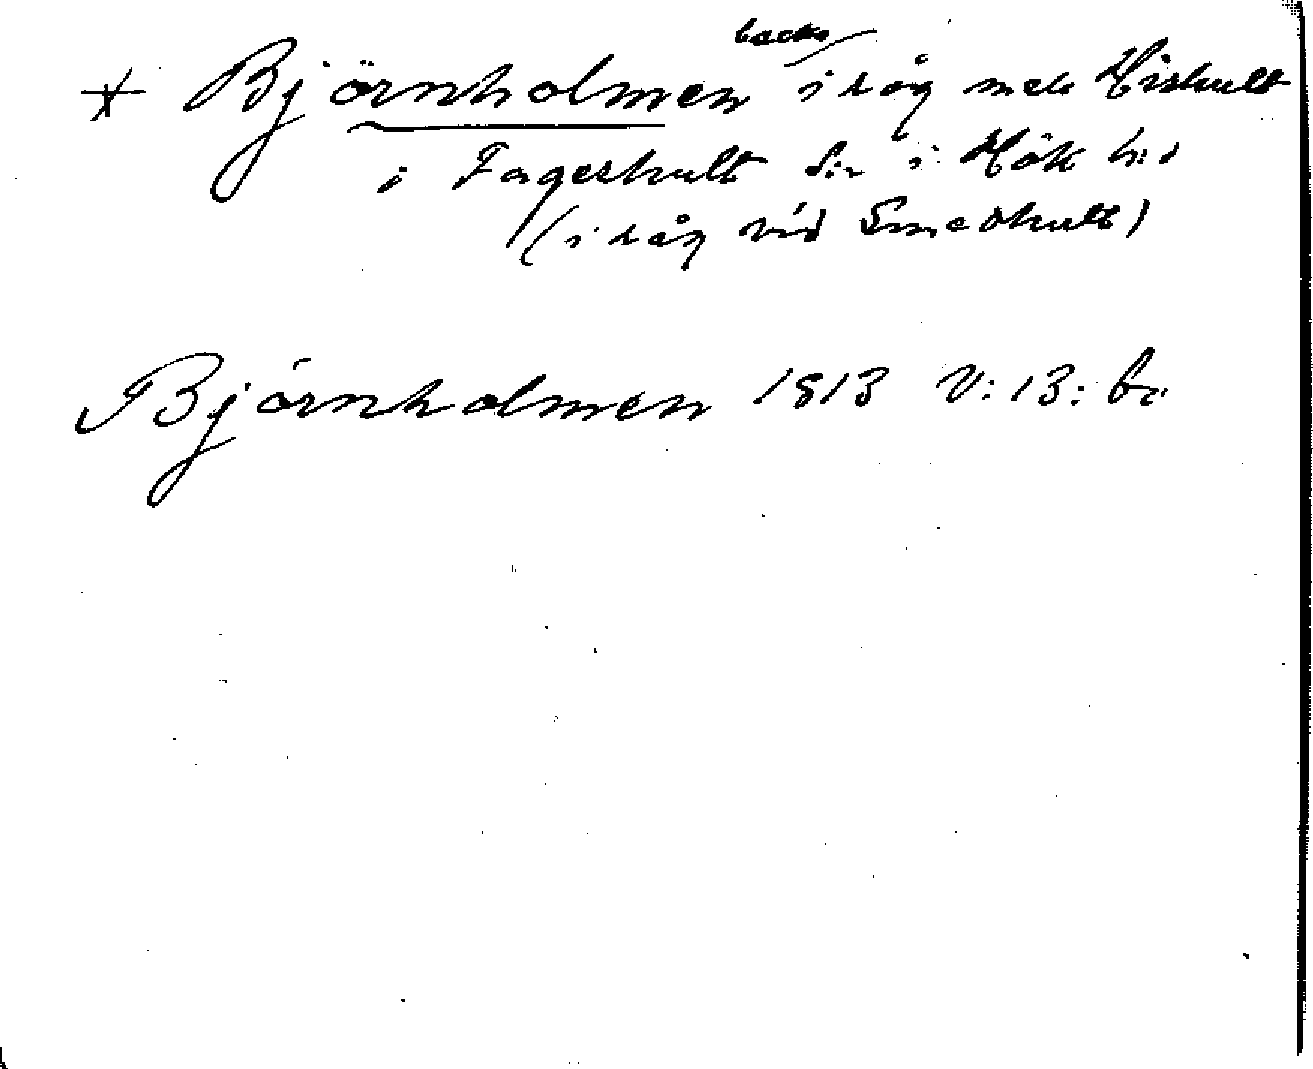 backe
* Björnholmen i råg med Hishult
i Fagerhult S:n i Hök h:d
(i råg vid Smedhult)
Björnholmen 1813 V:13: